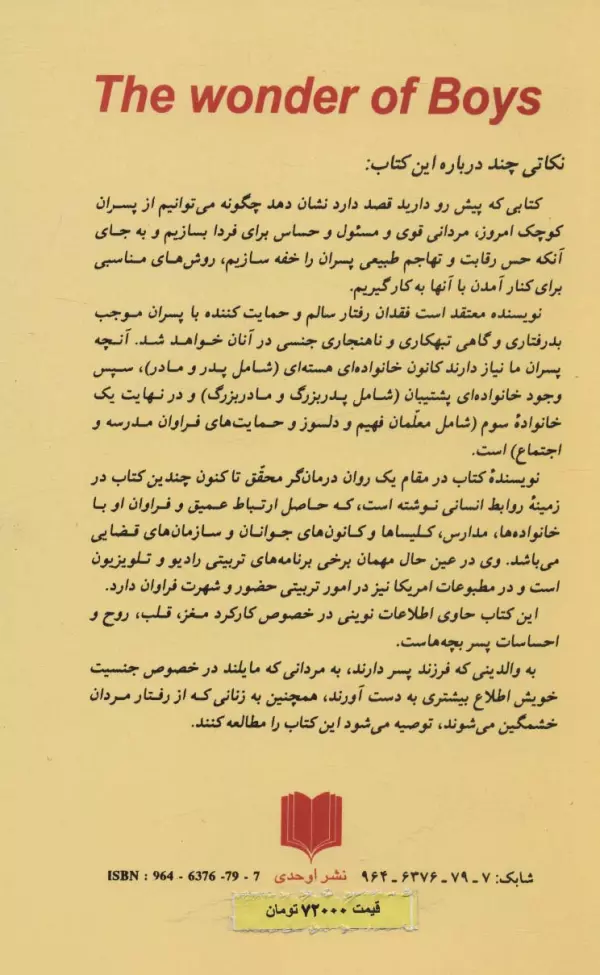 The wonder of Boys
نکاتی چند درباره این کتاب:
کتابی که پیش رو دارید قصد دارد نشان دهد چگونه می‌توانیم از پسران
کوچک امروز، مردانی قوی و مسئول و حساس برای فردا بسازیم و به جای
آنکه حس رقابت و تهاجم طبیعی پسران را خفه سازیم، روش‌های مناسبی
برای کنار آمدن با آنها به کار گیریم.
نویسنده معتقد است فقدان رفتار سالم و حمایت کننده با پسران موجب
بدرفتاری و گاهی تبهکاری و ناهنجاری جنسی در آنان خواهد شد. آنچه
پسران ما نیاز دارند کانون خانواده‌ای هسته‌ای (شامل پدر و مادر)، سپس
وجود خانواده‌ای پشتیبان (شامل پدربزرگ و مادربزرگ) و در نهایت یک
خانوادهٔ سوم (شامل معلّمان فهیم و دلسوز و حمایت‌های فراوان مدرسه و
اجتماع) است.
نویسندهٔ کتاب در مقام یک روان درمان‌گر محقّق تا کنون چندین کتاب در
زمینهٔ روابط انسانی نوشته است، که حاصل ارتباط عمیق و فراوان او با
خانواده‌ها، مدارس، کلیساها و کانون‌های جوانان و سازمان‌های قضایی
می‌باشد. وی در عین حال مهمان برخی برنامه‌های تربیتی رادیو و تلویزیون
است و در مطبوعات امریکا نیز در امور تربیتی حضور و شهرت فراوان دارد.
این کتاب حاوی اطلاعات نوینی در خصوص کارکرد مغز، قلب، روح و
احساسات پسر بچه‌هاست.
به والدینی که فرزند پسر دارند، به مردانی که مایلند در خصوص جنسیت
خویش اطلاع بیشتری به دست آورند، همچنین به زنانی که از رفتار مردان
خشمگین می‌شوند، توصیه می‌شود این کتاب را مطالعه کنند.
شابک: ۷ ـ ۷۹ ـ ۶۳۷۶ ـ ۹۶۴ نشر اوحدی ISBN : 964 - 6376 -79 - 7
قیمت ۷۲۰۰۰ تومان